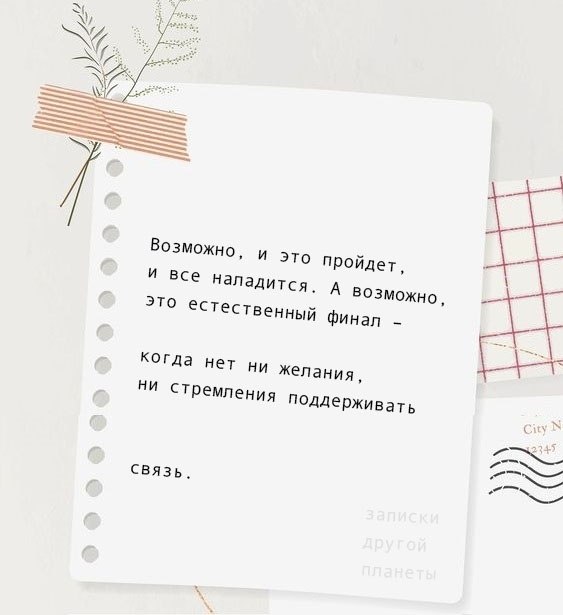 Возможно, и это пройдет,
и все наладится. А возможно,
это естественный финал –
когда нет ни желания,
ни стремления поддерживать
связь.
записки
другой
планеты
City N
12345